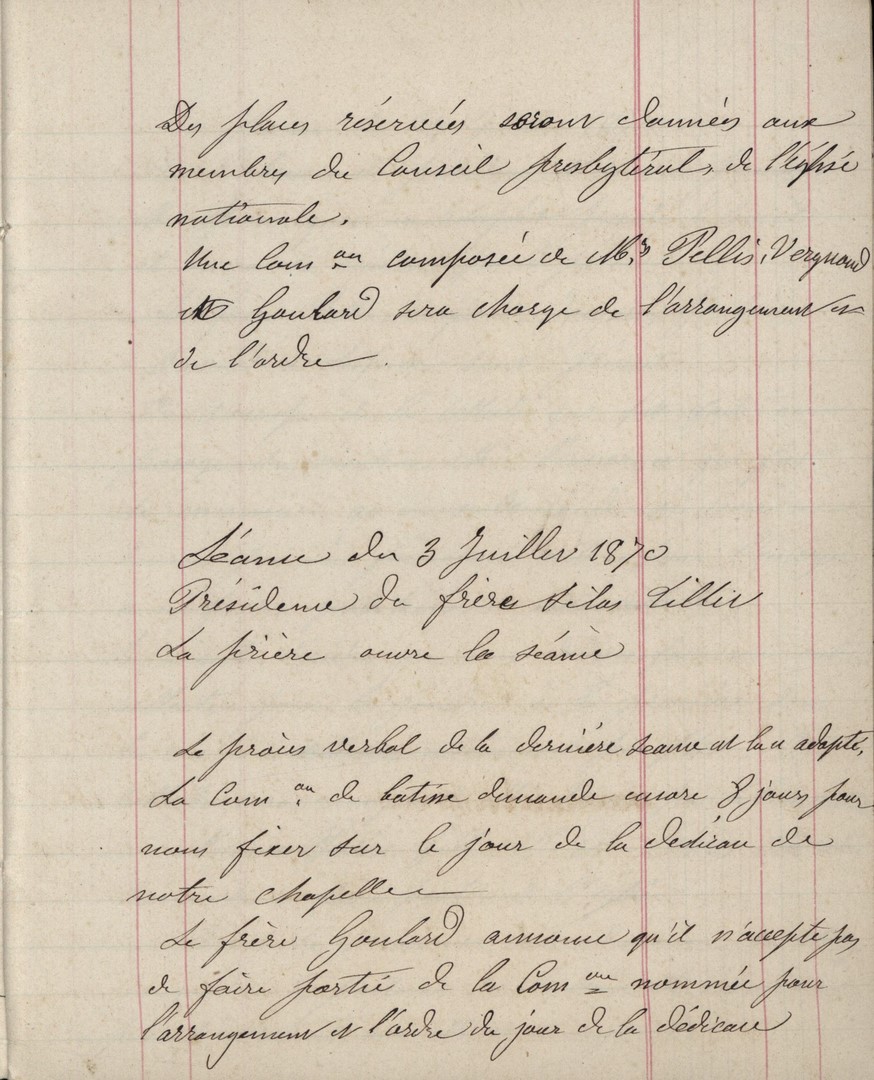 Des places réservées seront données aux
membres du Conseil presbytéral, de l'église
nationale.
Une Com on composée de Mrs Pellis, Vergnaud
et Goulard sera chargé de l'arrangement et
de l'ordre.
Séance du 3 Juillet 1870
Présidence du frère Silas
La prière ouvre la séance
Le procès verbal de la dernière séance est lu adopté,
La Com on de batisse demande encore 8 jours pour
nous fixer sur le jour de la dédicace de
notre chapelle
Le frère Goulard annonce qu'il n'accepte pas
de faire partie de la Com on nommée pour
l'arrangement et l'ordre du jour de la dédicace